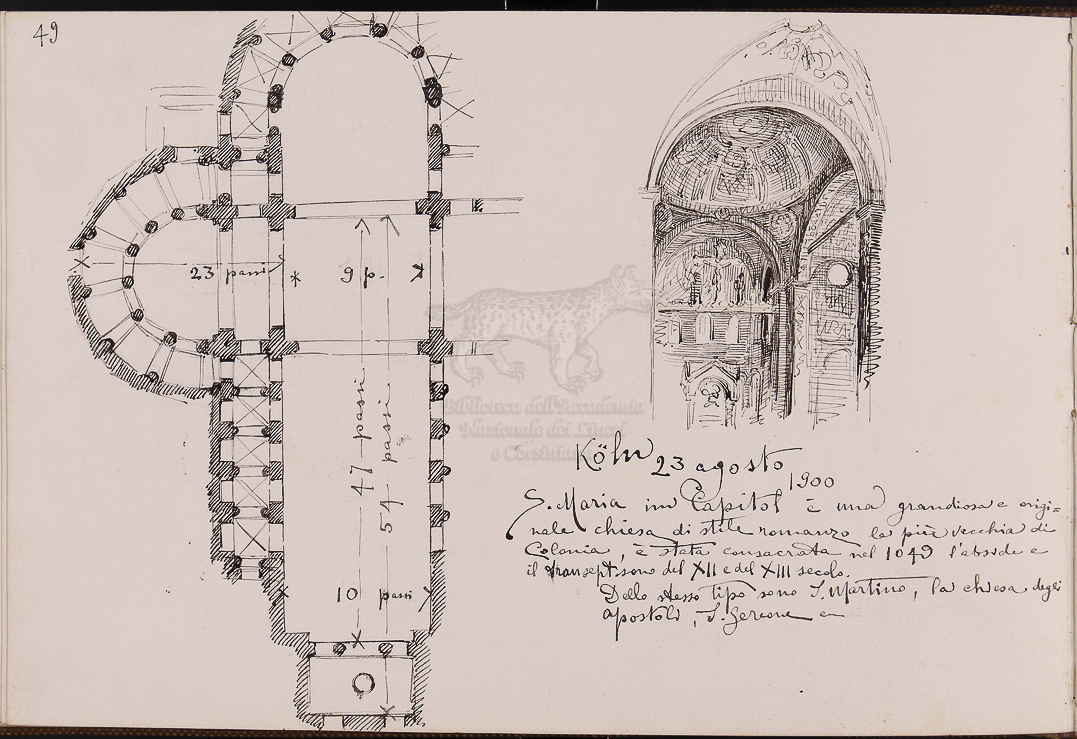 49
23 passi
9 p.
47 passi
54 passi
10 passi
Biblioteca dell'Accademia
Nazionale dei Lincei
e Corsiniana
Köln 23 agosto
1900
S. Maria im Capitol è una grandiosa e origi=
nale chiesa di stile romanzo la più vecchia di
Colonia, è stata consacrata nel 1049 l'abside e
il transept sono del XII e del XIII secolo.
Dello stesso tipo sono S. Martino, la chiesa degli
apostoli, S. Gereone